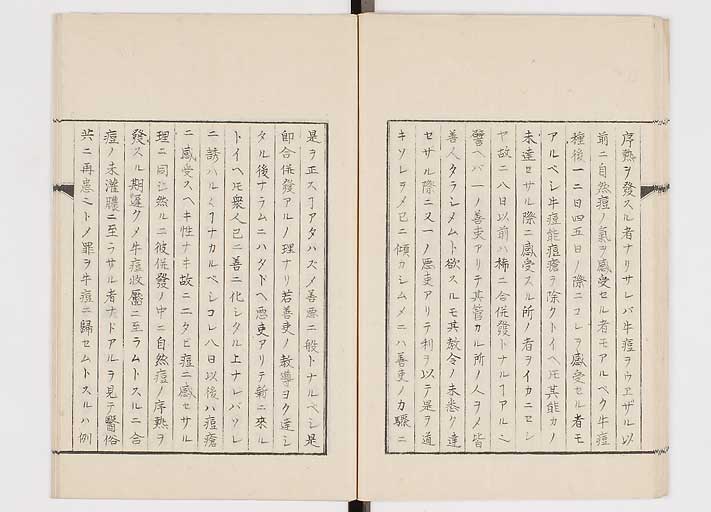 序熱ヲ發スル者ナリサレバ牛痘ヲウヱザル以
前ニ自然痘ノ氣ヲ感受セル者モアルベク牛痘
種後一二日四五日ノ際ニコレヲ感受セル者モ
アルベシ牛痘能痘瘡ヲ除クトイヘ𪜈其能カノ
未達セサル際ニ感受スル所ノ者ヲイカニセン
ヤ故ニ八日以前ハ稀ニ合併發トナルヿアルニ
譬ヘバ一ノ善吏アリテ其管カル所ノ人ヲメ皆
善人タランメムト欲スルモ其教令ノ未悉ク達
セザル際ニ又一ノ悪吏アリテ利ヲ以テ是ヲ道
キソレヲメ已ニ傾カシムメニハ善吏ノカ驟ニ
是ヲ正スヿアタハズメ善悪ニ般トナルベシ是
即合併發アルノ理ナリ若善吏ノ教導ヨク達シ
タル後ナラムニハタトヘ悪吏アリテ新ニ來ル
トイヘ𪜈衆人已ニ善ニ化シタル上ナレバソレ
ニ誘ハルヽヿナカルベシコレ八日以後ハ痘瘡
ニ感受スヘキ性ナキ故ニ二タビ痘ニ感セサル
理ニ同シ然ルニ彼併發ノ中ニ自然痘ノ序熱ヲ
發スル期遲クメ牛痘收靨ニ至ラムトスルニ合
痘ノ未灌膿ニ至ラサル者ナドアルヲ見テ醫俗
共ニ再患ニトノ罪ヲ牛痘ニ歸セムトスルハ例